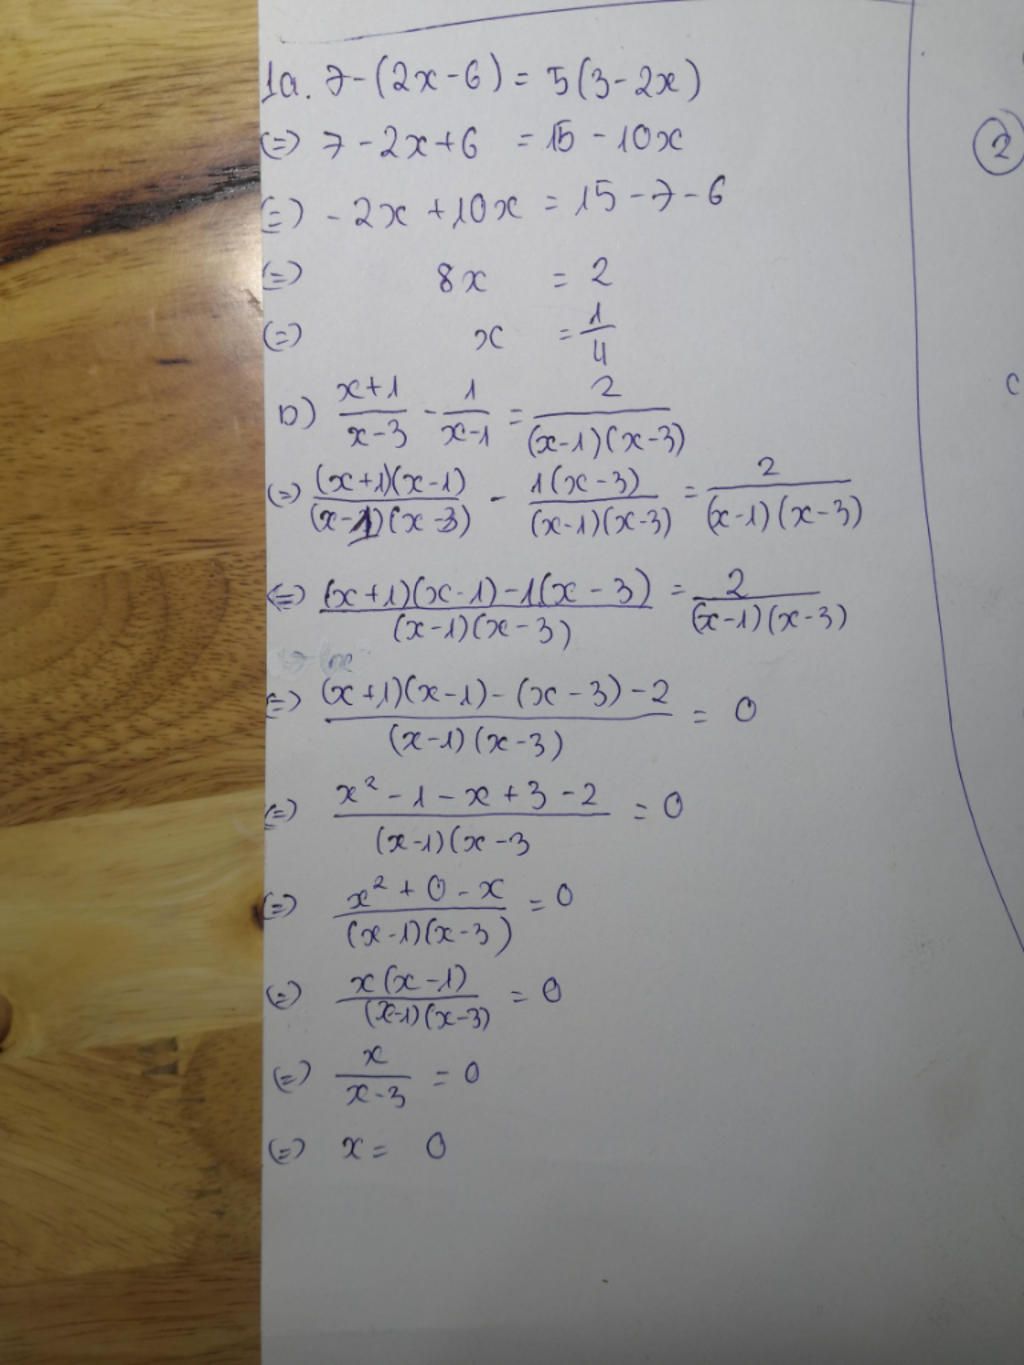 1a. 7-(2x-6) = 5(3-2x)
(=) 7-2x+6 = 15-10x
(=) -2x+10x = 15-7-6
(=) 8x = 2
(=) x = 1/4
b) (x+1)/(x-3) - 1/(x-1) = 2/((x-1)(x-3))
(=) ((x+1)(x-1))/((x-1)(x-3)) - (1(x-3))/((x-1)(x-3)) = 2/((x-1)(x-3))
(=) ((x+1)(x-1)-1(x-3))/((x-1)(x-3)) = 2/((x-1)(x-3))
(=) ((x+1)(x-1)-(x-3)-2)/((x-1)(x-3)) = 0
(=) (x²-1-x+3-2)/((x-1)(x-3) = 0
(=) (x²+0-x)/((x-1)(x-3)) = 0
(=) (x(x-1))/((x-1)(x-3)) = 0
(=) x/(x-3) = 0
(=) x = 0
2
c